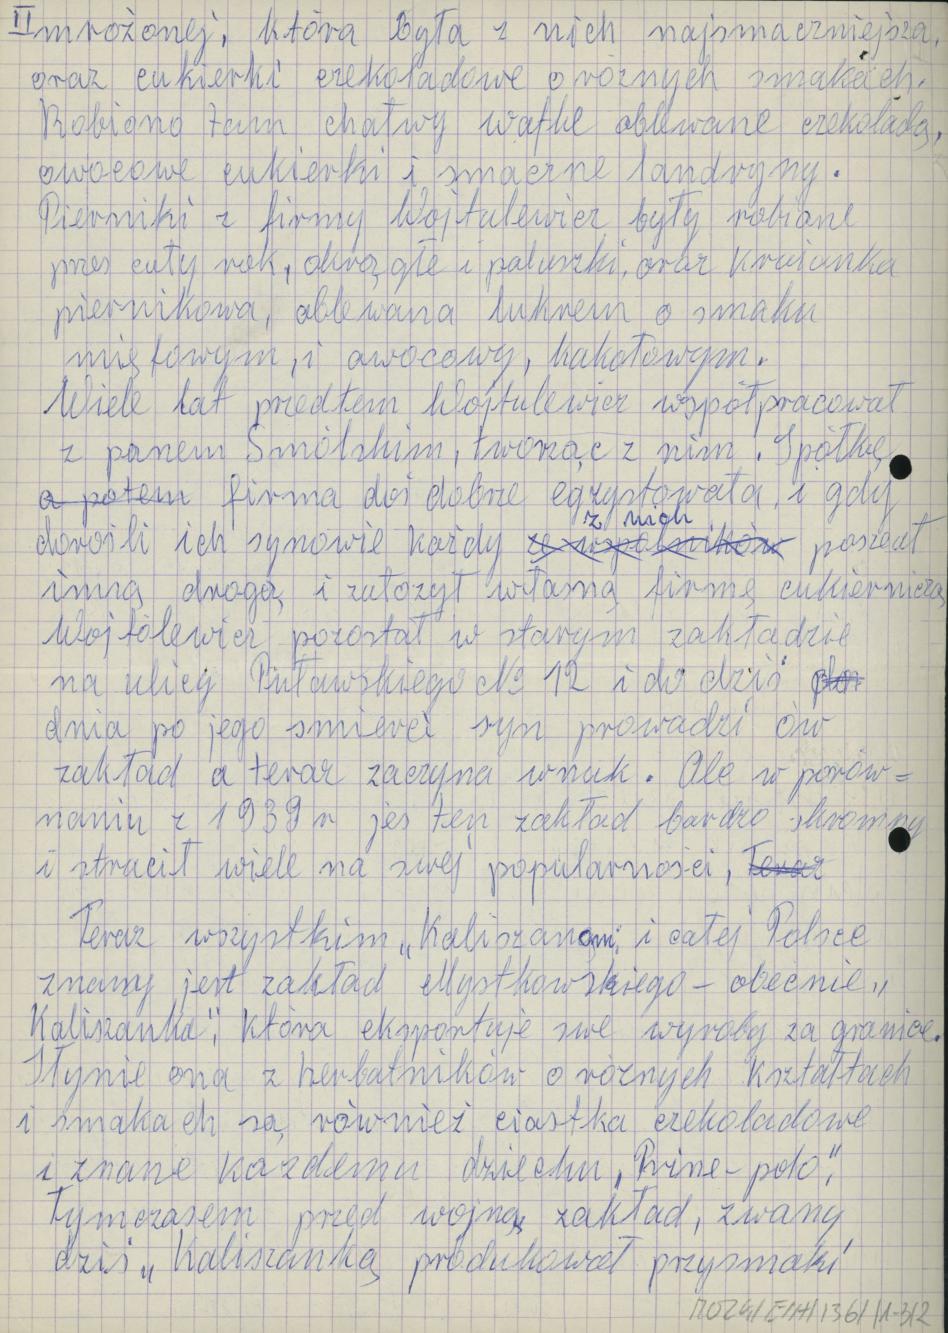 II mrożonej, która była z nich najsmaczniejsza,
oraz cukierki czekoladowe o różnych smakach.
Robiono tam chałwy wafle oblewane czekoladą,
owocowe cukierki i smaczne landryny.
Pierniki z firmy Wojtulewicz były robione
przes cały rok, okrągłe i paluszki, oraz krajanka
piernikowa, oblewana lukrem o smaku
miętowym, i owocowy, kakołowym.
Wiele lat przedtem Wojtulewicz współpracował
z panem Smólskim, tworząc z nim. Spółkę
a potem firma doś dobrze egzystowała, i gdy
dorośli ich synowie każdy ze wspólników z nich poszedł
inną drogą i założył własną firmę cukierniczą
Wojtólewicz pozostał w starym zakładzie
na ulicy Puławskiego № 12 i do dziś
dnia po jego smierci syn prowadzi ów
zakład a teraz zaczyna wnuk. Ale w porów=
naniu z 1939 r jes ten zakład bardzo skromny
i stracił wiele na swej popularności, Teraz
Teraz wszystkim „Kaliszanom; i całej Polsce
znany jest zakład Mystkowskiego - obecnie „
Kaliszanka", która eksportuje swe wyroby za granice.
Słynie ona z herbatników o róznych kształtach
i smakach są również ciastka czekoladowe
i znane każdemu dziecku „Prine-polo",
Tymczasem przed wojną zakład, zwany
dziś „Kaliszanką produkował przysmaki